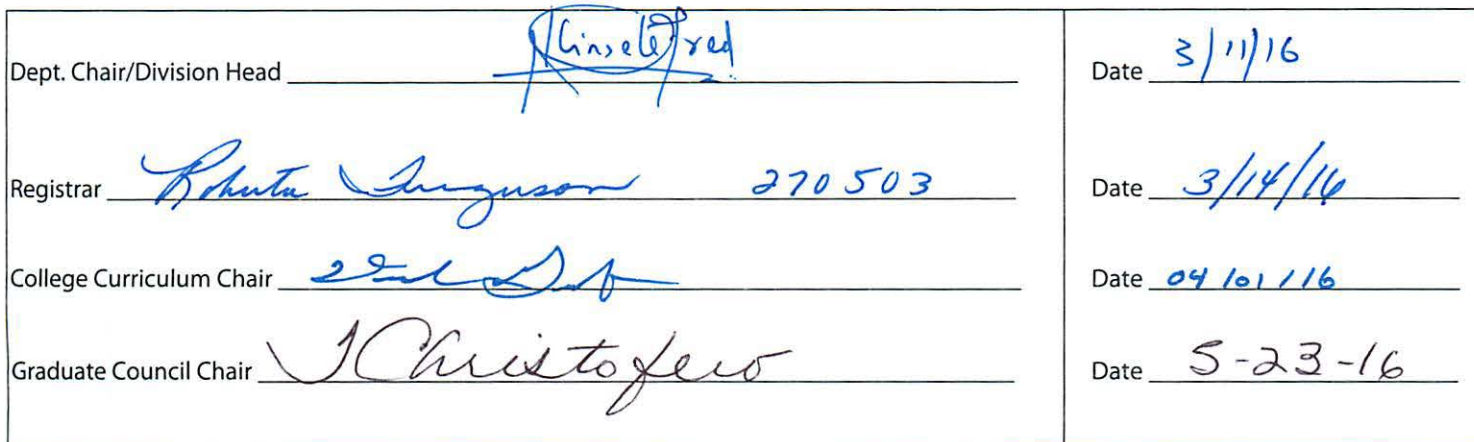 Dept. Chair/Division Head Date 3/11/16
Registrar Roberta Ferguson 270503 Date 3/14/16
College Curriculum Chair Date 04/01/16
Graduate Council Chair J Christofero Date 5-23-16